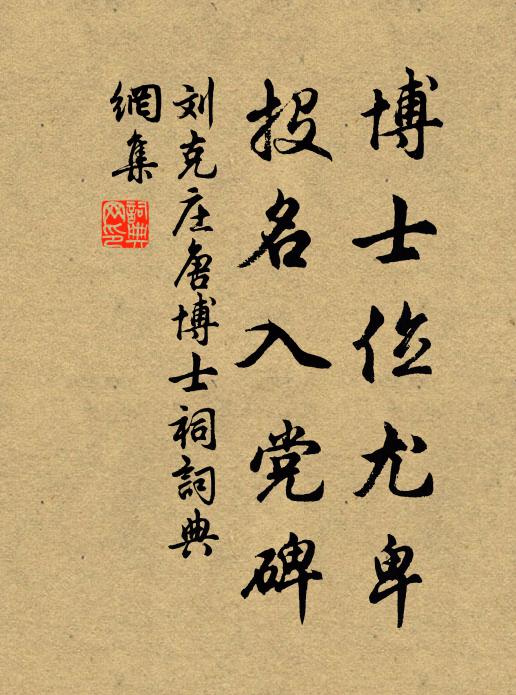 博士位尤卑
投名入党碑
刘克庄唐博士祠詞典
網集
詞典
网印